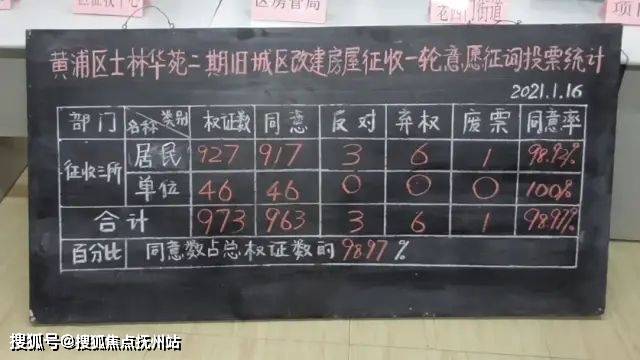 区房管局
老西门街道
黄浦区士林华苑二期旧城区改建房屋征收一轮意愿征询投票统计
2021.1.16
部门 名称 类别 权证数 同意 反对 弃权 废票 同意率
征收三所 居民 927 917 3 6 1 98.92%
单位 46 46 0 0 0 100%
合计 973 963 3 6 1 98.97%
百分比 同意数占总权证数的98.97%
搜狐号@搜狐焦点抚州站